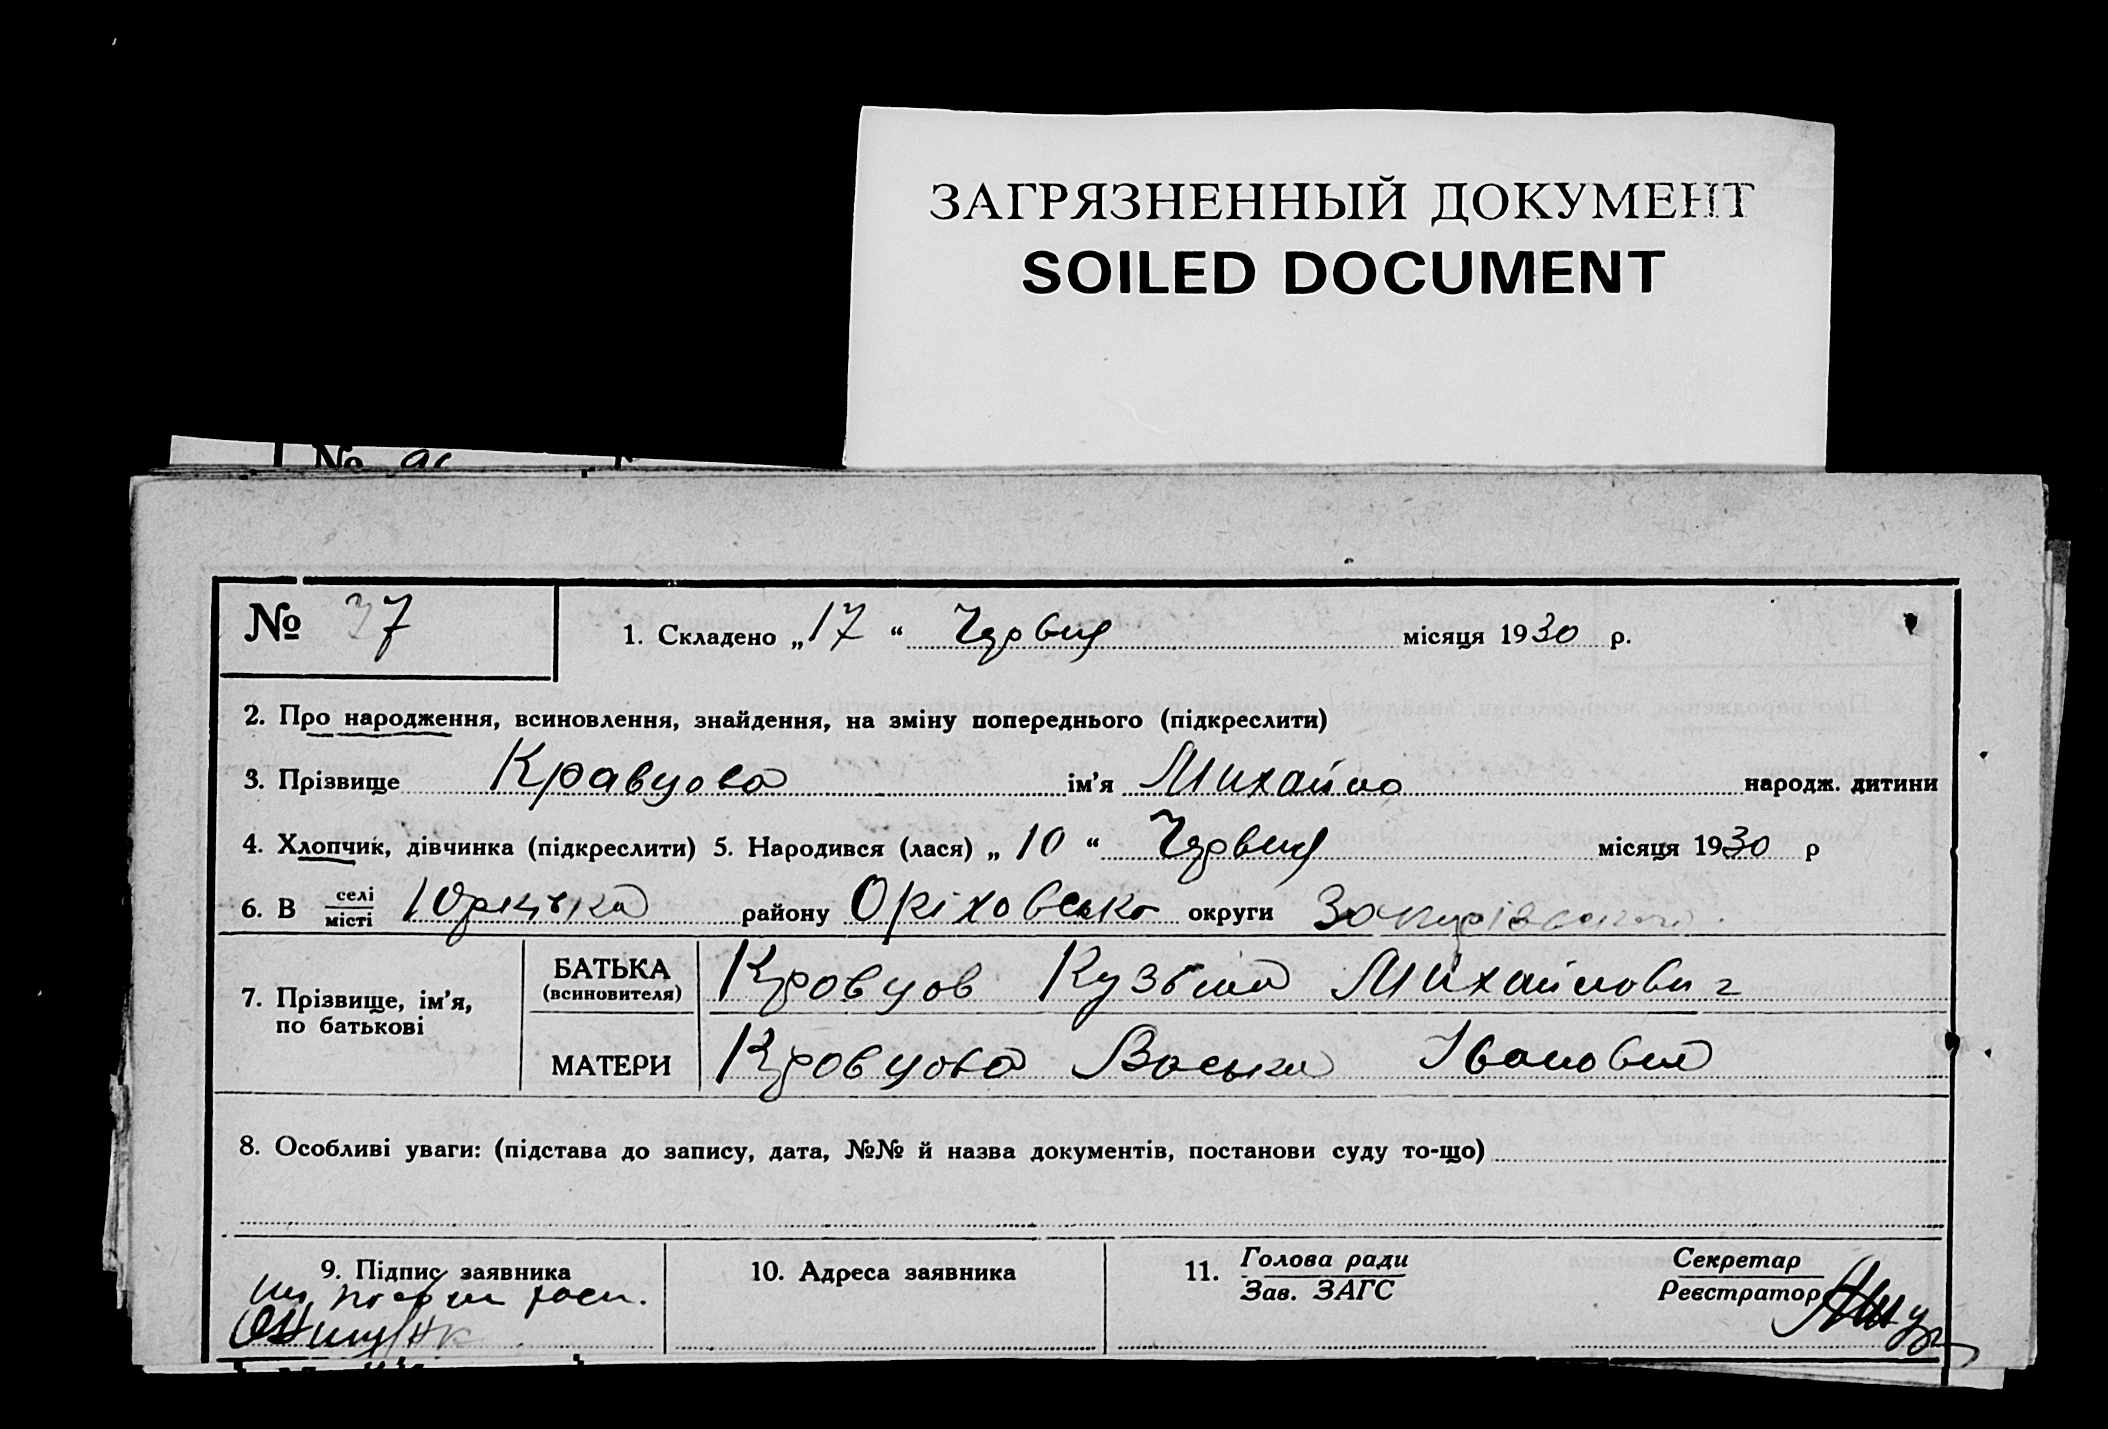 ЗАГРЯЗНЕННЫЙ ДОКУМЕНТ
SOILED DOCUMENT
№
№ 37
1. Складено „17“ Червня місяця 1930 р.
2. Про народження, всиновлення, знайдення, на зміну попереднього (підкреслити)
3. Прізвище Кравцова ім'я Михайло народж. дитини
4. Хлопчик, дівчинка (підкреслити) 5. Народився (лася) „10“ Червня місяця 1930 р
6. В селі / місті Юрківка району Оріховсько округи
7. Прізвище, ім'я, по батькові
БАТЬКА (всиновителя) Кравцов Кузьма Михайлович
МАТЕРИ Кравцова Васька Івановна
8. Особливі уваги: (підстава до запису, дата, №№ й назва документів, постанови суду то-що)
9. Підпис заявника
10. Адреса заявника
11. Голова ради / Зав. ЗАГС
Секретар / Реєстратор